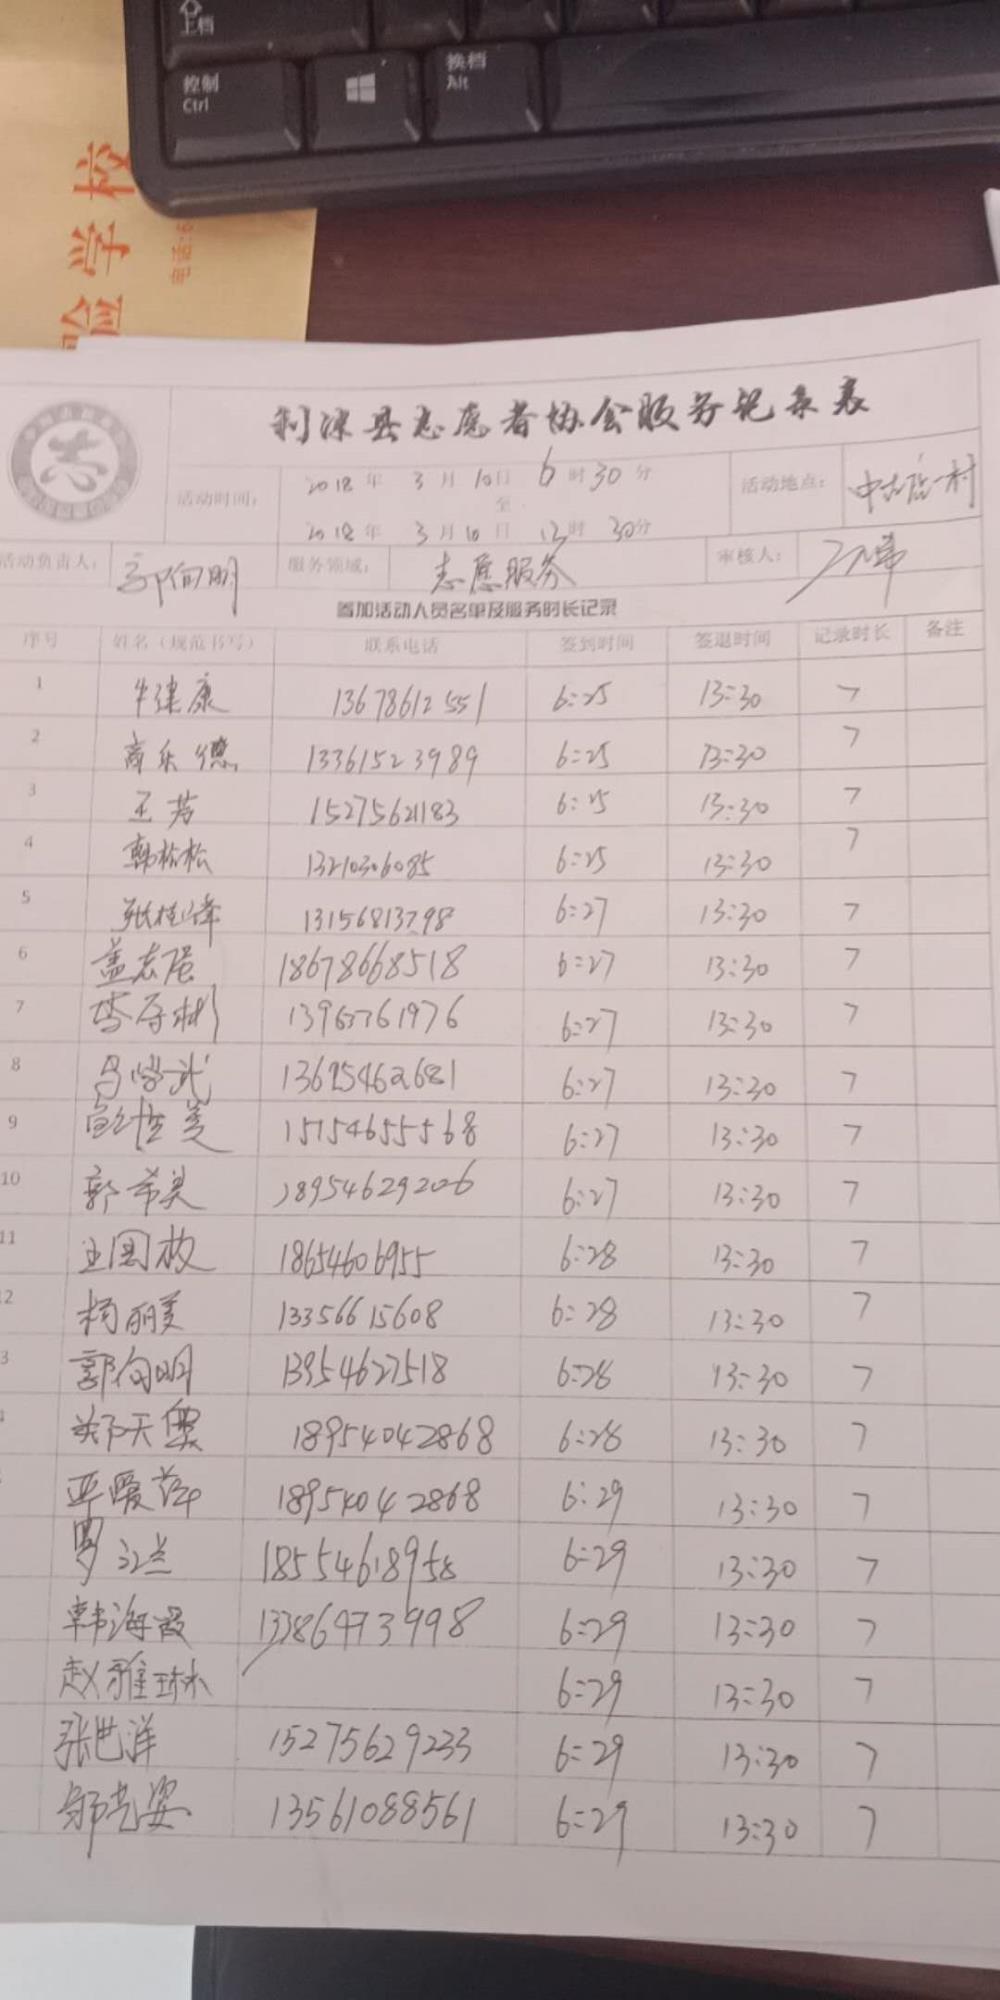 上档
控制
Ctrl
换档
Alt
学校
电话:6
利津县志愿者协会服务记录表
活动时间: 2018年 3月10日 6时30分
至
2018年 3月10日 13时30分
活动地点: 中古店一村
活动负责人: 郭向明 服务领域: 志愿服务 审核人:
参加活动人员名单及服务时长记录
序号 姓名(规范书写) 联系电话 签到时间 签退时间 记录时长 备注
1 牛建康 13678612551 6:25 13:30 7
2 商乐德 13361523989 6:25 13:30 7
3 王芳 15275621183 6:25 13:30 7
4 韩松松 13210306085 6:25 13:30 7
5 张桂峰 13156813798 6:27 13:30 7
6 盖志强 18678668518 6:27 13:30 7
7 李存彬 13963761976 6:27 13:30 7
8 13695462681 6:27 13:30 7
9 15154655568 6:27 13:30 7
10 郭希美 18954629206 6:27 13:30 7
11 王国枚 18654606955 6:28 13:30 7
2 杨丽美 13356615608 6:28 13:30 7
3 郭向明 13954627518 6:28 13:30 7
郑天奥 18954042868 6:28 13:30 7
爱萍 18954042868 6:29 13:30 7
罗江兰 18554618958 6:29 13:30 7
韩海霞 13386473998 6:29 13:30 7
赵雅琳 6:29 13:30 7
张世洋 15275629233 6:29 13:30 7
13561088561 6:29 13:30 7